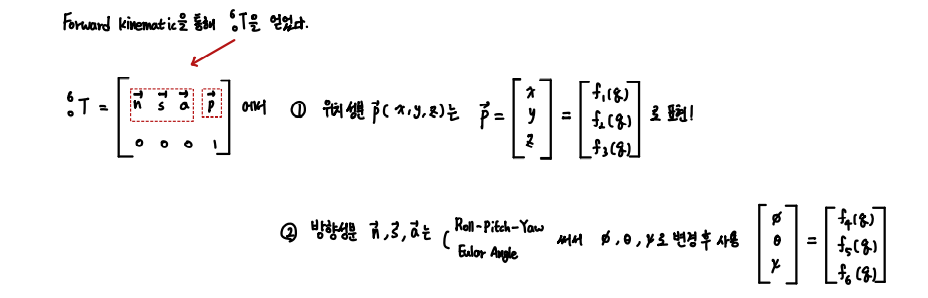 Forward kinematic을 통해 ⁶₀T을 얻었다.
⁶₀T = [ n⃗ s⃗ a⃗ p⃗ ; 0 0 0 1 ] 에서 ① 위치성분 p⃗(x,y,z)는 p⃗ = [ x ; y ; z ] = [ f₁(q) ; f₂(q) ; f₃(q) ] 로 표현!
② 방향성분 n⃗, s⃗, a⃗는 ( Roll-Pitch-Yaw
Eulor Angle
써서 ϕ, θ, ψ로 변경 후 사용 [ ϕ ; θ ; ψ ] = [ f₄(q) ; f₅(q) ; f₆(q) ]